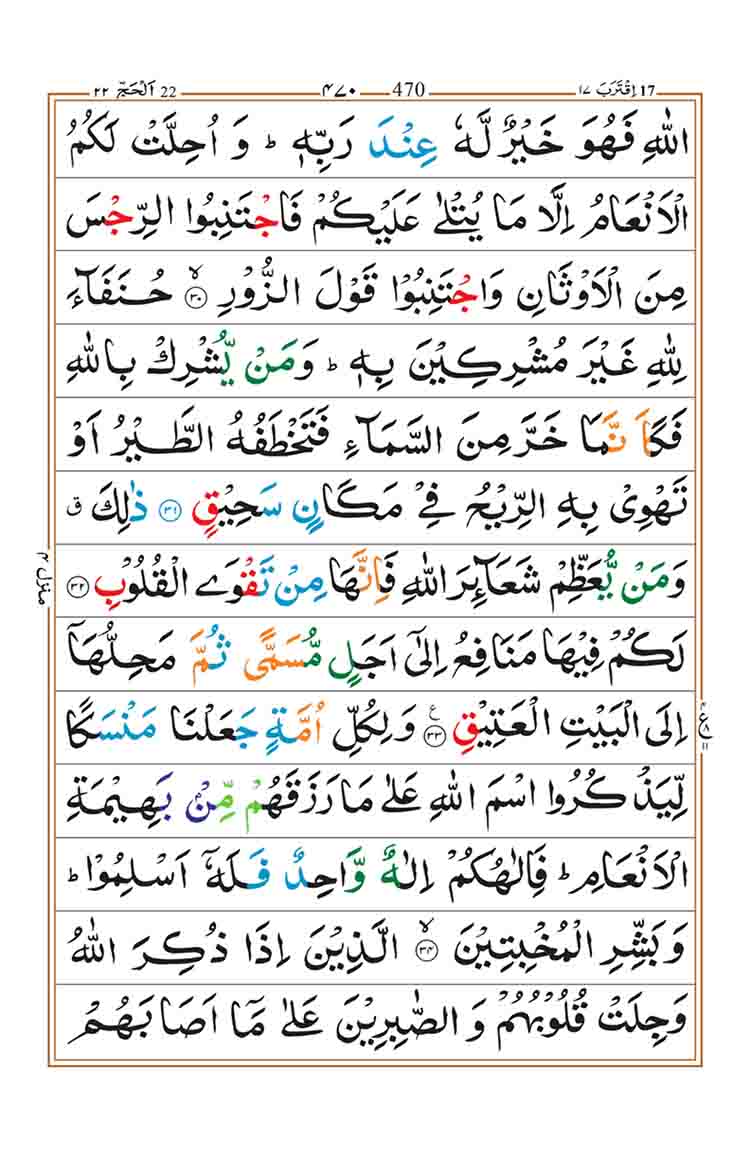 17 اِقْتَرَبَ ١٧ 470 ۴۷۰ 22 اَلْحَجّ ٢٢
اللّٰهِ فَهُوَ خَيْرٌ لَّهٗ عِنْدَ رَبِّهٖ ؕ وَ اُحِلَّتْ لَكُمُ
الْاَنْعَامُ اِلَّا مَا يُتْلٰى عَلَيْكُمْ فَاجْتَنِبُوا الرِّجْسَ
مِنَ الْاَوْثَانِ وَاجْتَنِبُوْا قَوْلَ الزُّوْرِ ۙ‏ ﴿۳۰﴾ حُنَفَآءَ
لِلّٰهِ غَيْرَ مُشْرِكِيْنَ بِهٖ ؕ وَمَنْ يُّشْرِكْ بِاللّٰهِ
فَكَاَنَّمَا خَرَّ مِنَ السَّمَآءِ فَتَخْطَفُهُ الطَّيْرُ اَوْ
تَهْوِىْ بِهِ الرِّيْحُ فِىْ مَكَانٍ سَحِيْقٍ ﴿۳۱﴾ ذٰلِكَ ق
وَمَنْ يُّعَظِّمْ شَعَآئِرَ اللّٰهِ فَاِنَّهَا مِنْ تَقْوَى الْقُلُوْبِ ﴿۳۲﴾
منزل ۴
لَكُمْ فِيْهَا مَنَافِعُ اِلٰٓى اَجَلٍ مُّسَمًّى ثُمَّ مَحِلُّهَاۤ
اِلَى الْبَيْتِ الْعَتِيْقِ ﴿۳۳﴾ ع وَلِكُلِّ اُمَّةٍ جَعَلْنَا مَنْسَكًا
لِّيَذْكُرُوا اسْمَ اللّٰهِ عَلٰى مَا رَزَقَهُمْ مِّنْۢ بَهِيْمَةِ
الْاَنْعَامِ ؕ فَاِلٰهُكُمْ اِلٰهٌ وَّاحِدٌ فَلَهٗۤ اَسْلِمُوْا ؕ
وَبَشِّرِ الْمُخْبِتِيْنَ ۙ‏ ﴿۳۴﴾ الَّذِيْنَ اِذَا ذُكِرَ اللّٰهُ
وَجِلَتْ قُلُوْبُهُمْ وَ الصّٰبِرِيْنَ عَلٰى مَاۤ اَصَابَهُمْ